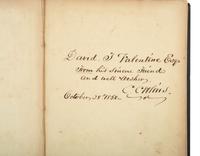 David T Valentine Esq
From his Sincere Friend
and well Wisher
October, 28" 185